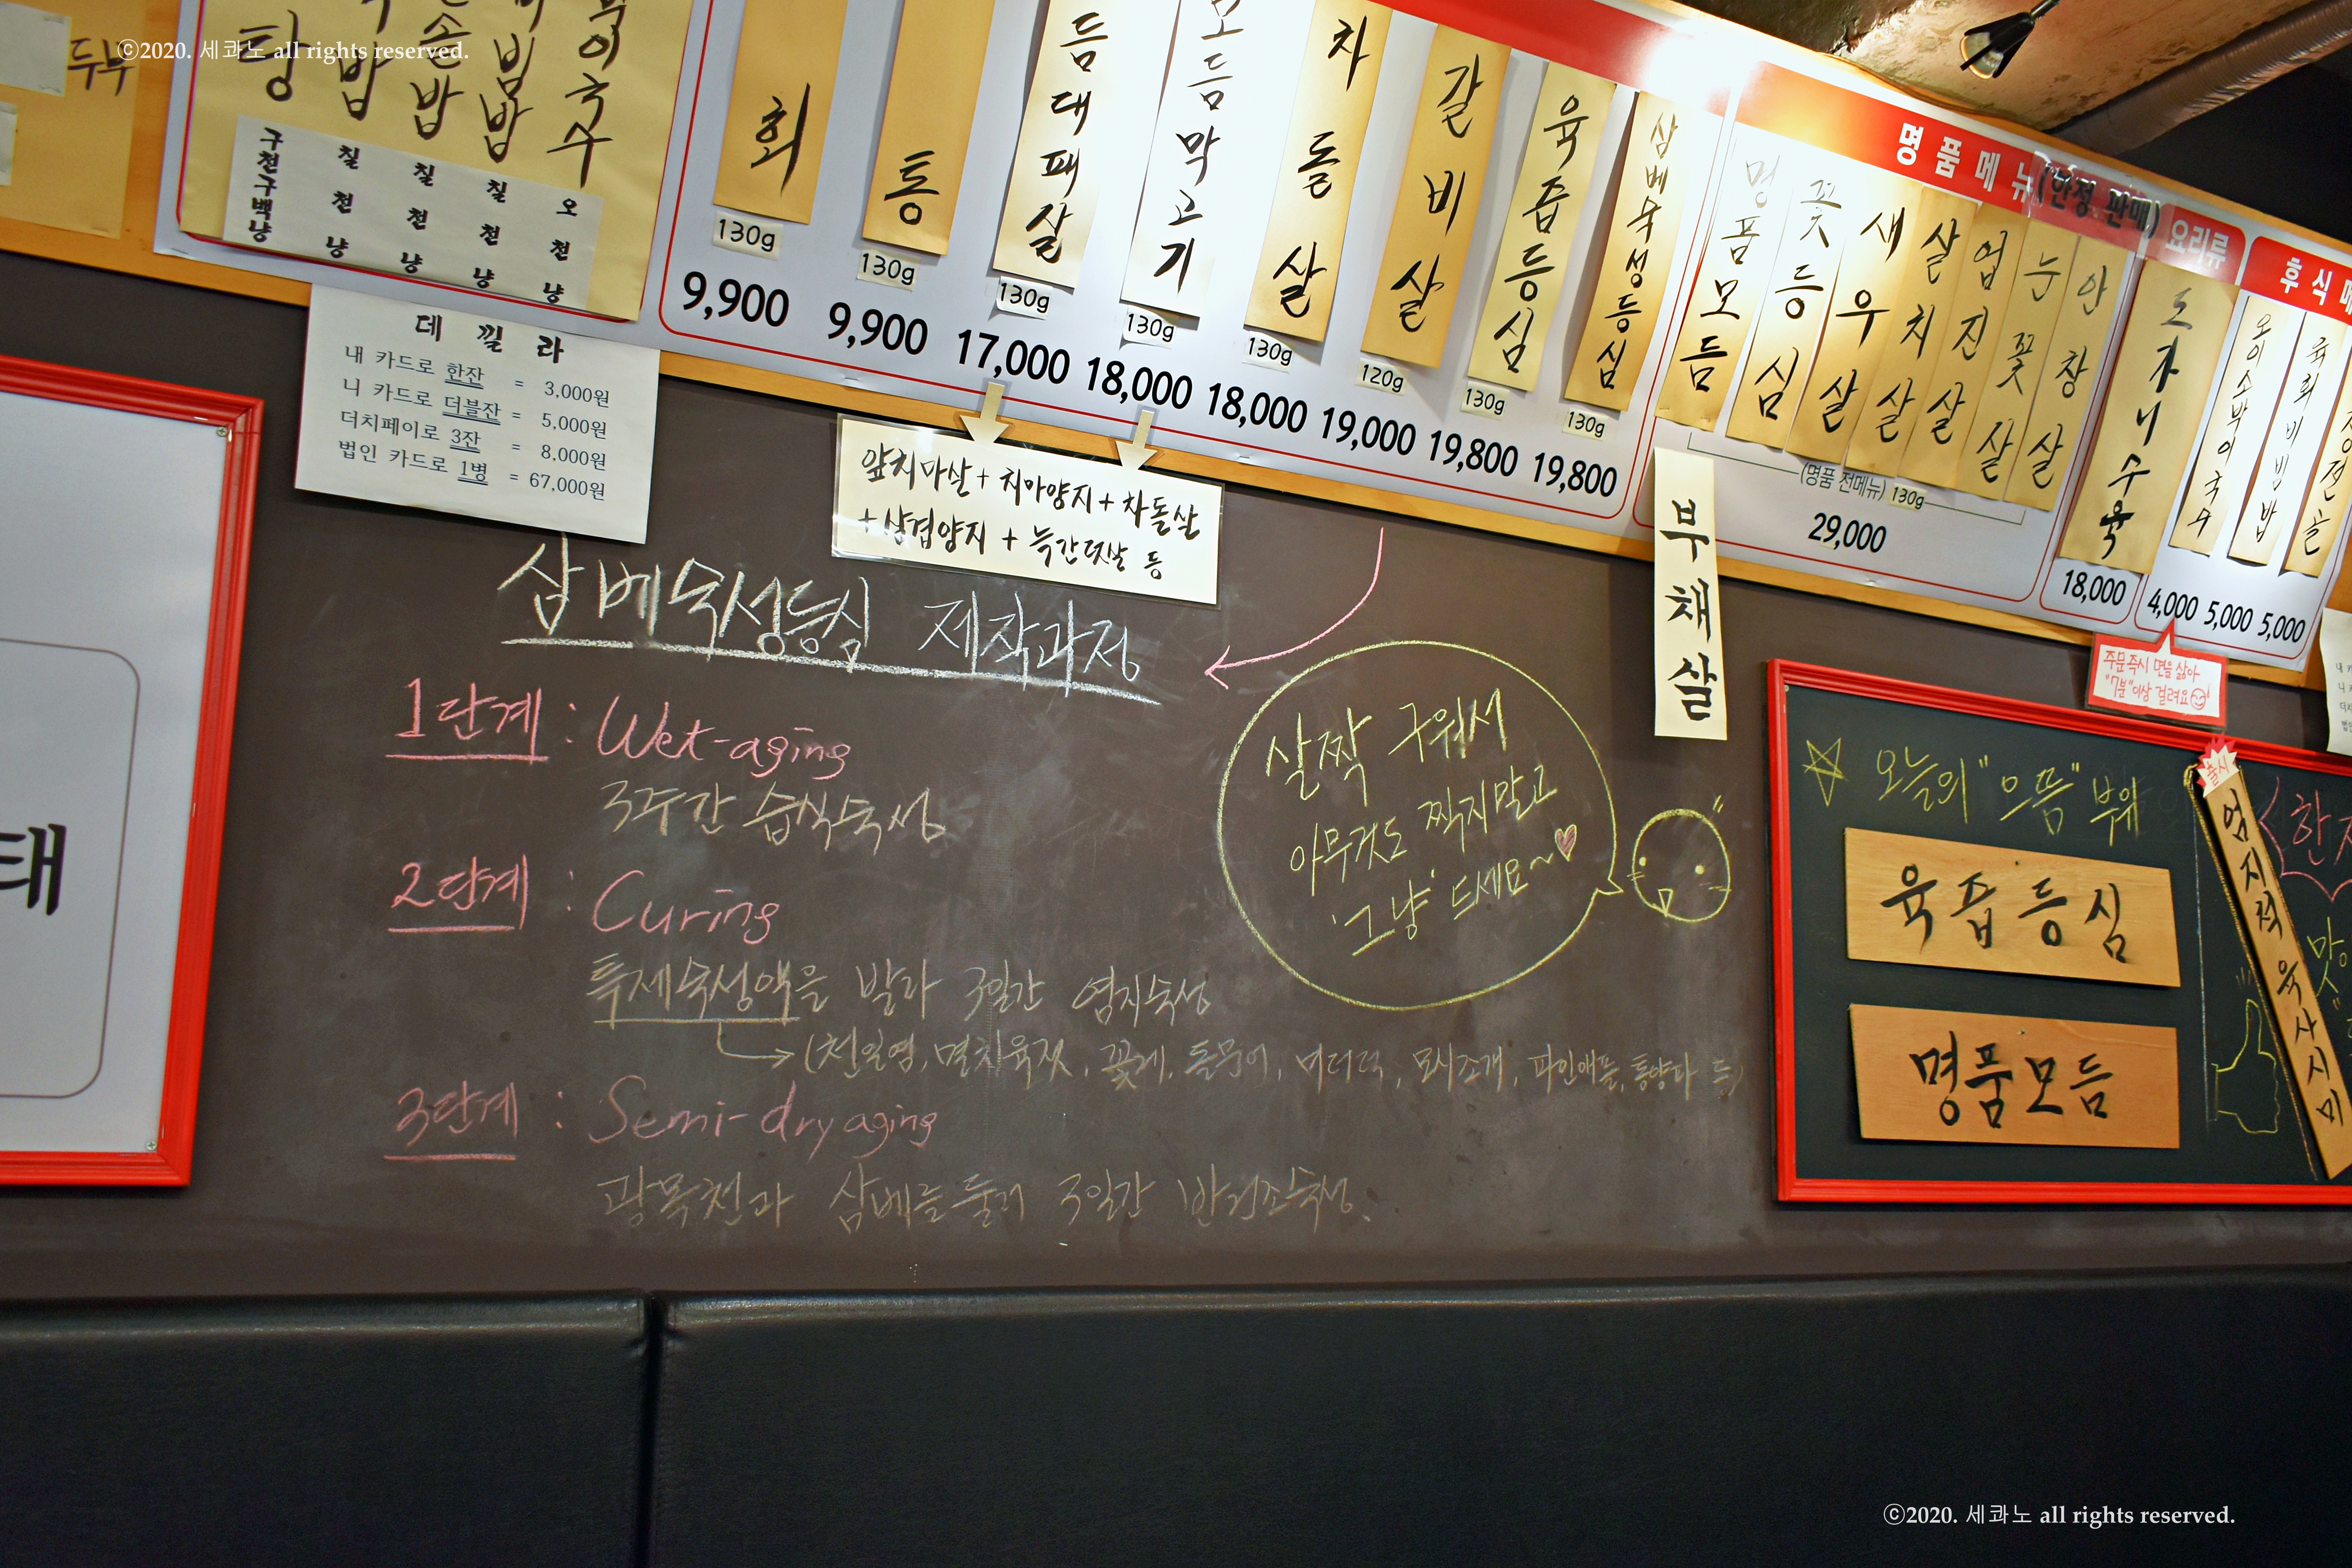 두부
ⓒ2020. 세콰노 all rights reserved.
탕
밥
손밥
빔밥
묵이국수
구천구백냥
칠천냥
칠천냥
칠천냥
오천냥
데낄라
내 카드로 한잔 = 3,000원
니 카드로 더블잔 = 5,000원
더치페이로 3잔 = 8.000원
법인 카드로 1병 = 67,000원
회
130g
9,900
통
130g
9,900
듬대패살
130g
17,000
모듬막고기
130g
18,000
차돌살
130g
18,000
갈비살
120g
19,000
육즙등심
130g
19,800
삼베숙성등심
130g
19,800
앞치마살 + 치마양지 + 차돌살
+ 삼겹양지 + 늑간덧살 등
명품메뉴 (한정 판매)
명품모듬
꽃등심
새우살
살치살
업진살
눈꽃살
안창살
(명품 전메뉴) 130g
29,000
부채살
요리류
도가니수육
18,000
후식메
오이소박이국수
4,000
육회비빔밥
5,000
5,000
주문 즉시 면을 삶아
"7분"이상 걸려요
삼베숙성등심 제작과정
1단계 : Wet-aging
3주간 습식숙성
2단계 : Curing
특제숙성액을 발라 3일간 염지숙성
(천일염, 멸치육젓, 꽃게, 돌문어, 바다덕, 모시조개, 파인애플, 통양파 등)
3단계 : Semi-dry aging
광목천과 삼베를 둘러 3일간 반건조숙성.
살짝 구워서
아무것도 찍지말고
'그냥' 드세요~♥
오늘의 "으뜸" 부위
육즙등심
명품모듬
출시
엄지척 육사시미
태
ⓒ2020. 세콰노 all rights reserved.